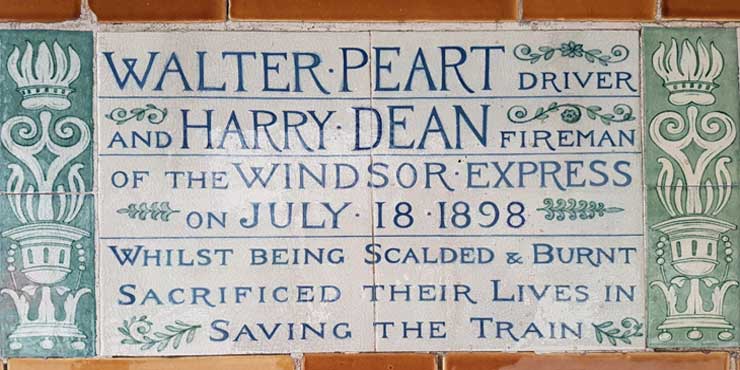 WALTER·PEART DRIVER
AND HARRY·DEAN FIREMAN
OF THE WINDSOR·EXPRESS
ON JULY·18·1898
WHILST BEING SCALDED & BURNT
SACRIFICED THEIR LIVES IN
SAVING THE TRAIN